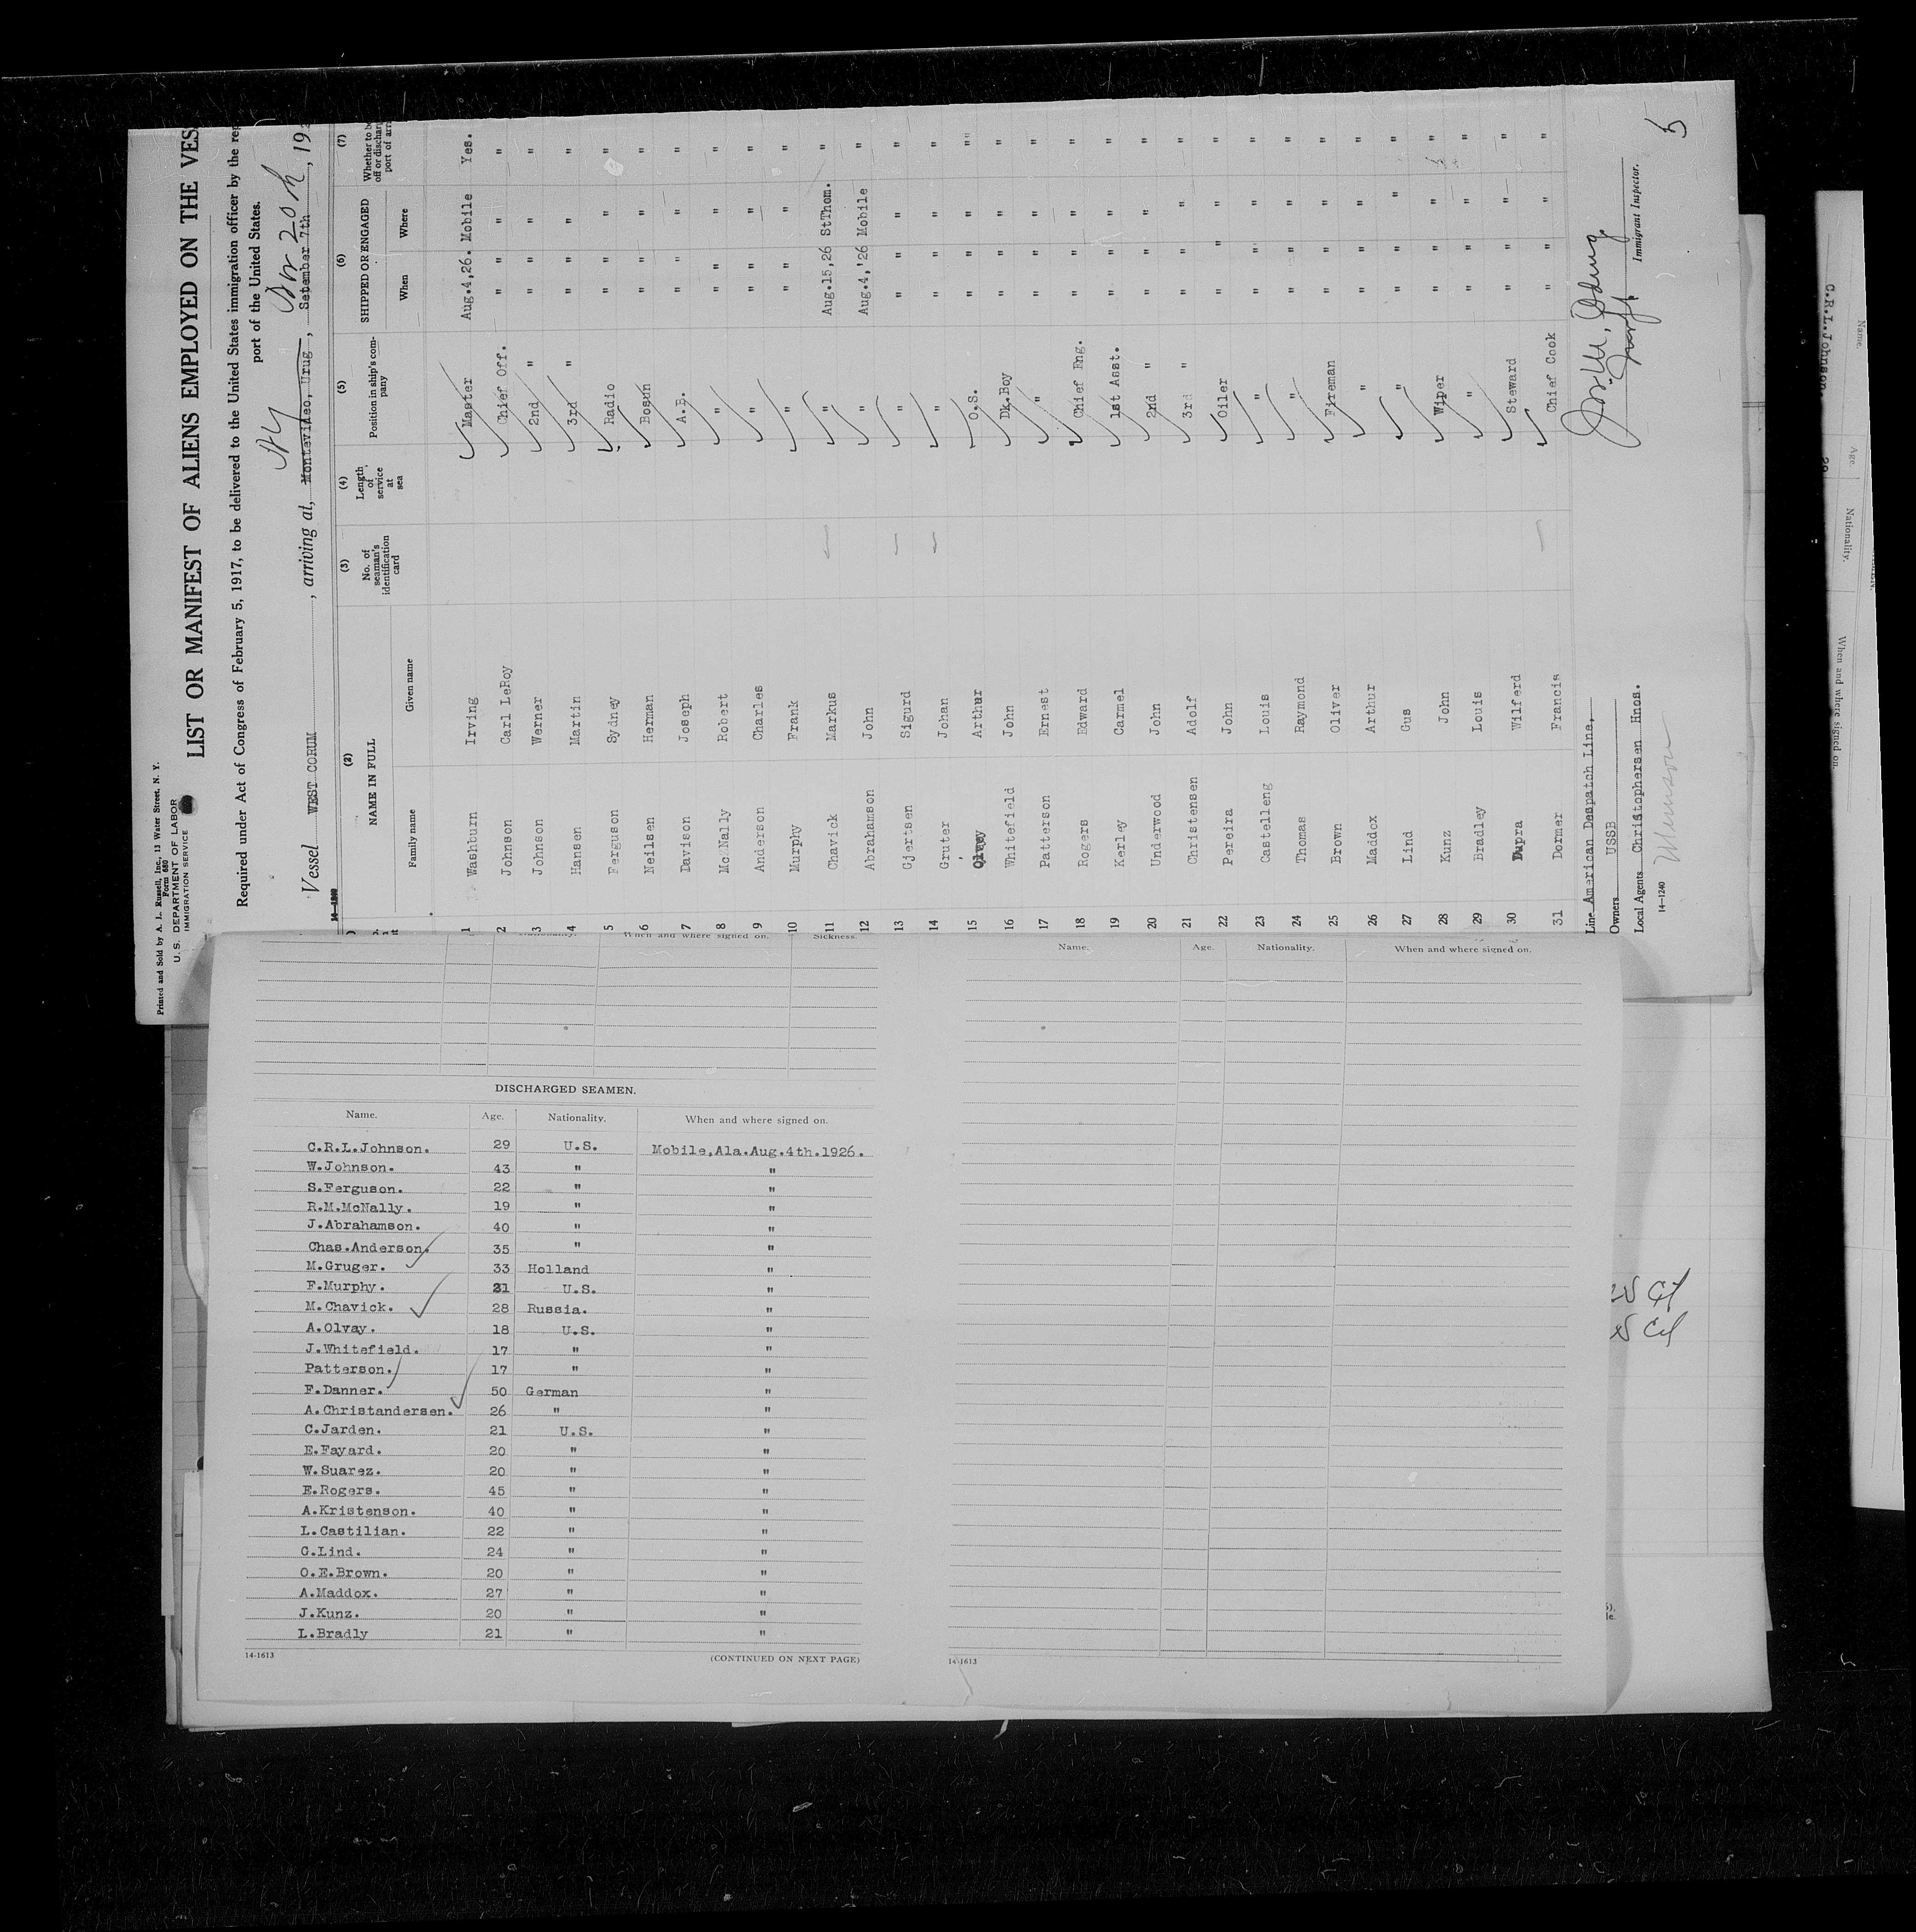 Printed and Sold by A. L. Russell, Inc., 13 Water Street, N. Y.
Form 680
U. S. DEPARTMENT OF LABOR
IMMIGRATION SERVICE
LIST OR MANIFEST OF ALIENS EMPLOYED ON THE VES
Required under Act of Congress of February 5, 1917, to be delivered to the United States immigration officer by the rep
port of the United States.
Vessel WEST CORUM, arriving at, Montevideo, Urug, Setember 7th, 19
14-1240
(2) (3) (4) (5) (6) (7)
NAME IN FULL No. of seaman's identification card Length of service at sea Position in ship's company SHIPPED OR ENGAGED Whether to be
off or discharg
port of arri
Family name Given name When Where
1 Washburn Irving Master Aug.4,26. Mobile Yes.
2 Johnson Carl LeRoy Chief Off. " " "
3 Johnson Werner 2nd " " " "
4 Hansen Martin 3rd " " " "
5 Ferguson Sydney Radio " " " "
6 Neilsen Herman Bosun " " " "
7 Davison Joseph A.B. " " " "
8 McNally Robert " " " " "
9 Anderson Charles " " " " "
10 Murphy Frank " " " " "
11 Chavick Markus " Aug.15,26 StThom. "
12 Abrahamson John " Aug.4,'26 Mobile "
13 Gjertsen Sigurd " " " " "
14 Gruter Johan " " " " "
15 Olvey Arthur O.S. " " " "
16 Whitefield John Dk.Boy " " " "
17 Patterson Ernest " " " " "
18 Rogers Edward Chief Eng. " " " "
19 Kerley Carmel 1st Asst. " " " "
20 Underwood John 2nd " " " " "
21 Christensen Adolf 3rd " " " " "
22 Pereira John Oiler " " " "
23 Castelleng Louis " " " " "
24 Thomas Raymond " " " " "
25 Brown Oliver Fireman " " " "
26 Maddox Arthur " " " " "
27 Lind Gus " " " " "
28 Kunz John Wiper " " " "
29 Bradley Louis " " " " "
30 Dupra Wilferd Steward " " " "
31 Dormer Francis Chief Cook " " " "
Line American Despatch Line,
Owners USSB
Local Agents Christophersen Hnos.
Immigrant Inspector.
14-1240
5
Nationality. When and where signed on. Sickness
DISCHARGED SEAMEN.
Name. Age. Nationality. When and where signed on.
C.R.L.Johnson. 29 U.S. Mobile,Ala.Aug.4th.1926.
W.Johnson. 43 " "
S.Ferguson. 22 " "
R.M.McNally. 19 " "
J.Abrahamson. 40 " "
Chas.Anderson. 35 " "
M.Gruger. 33 Holland "
F.Murphy. 21 U.S. "
M.Chavick. 28 Russia. "
A.Olvay. 18 U.S. "
J.Whitefield. 17 " "
Patterson. 17 " "
F.Danner. 50 German "
A.Christandersen. 26 " "
C.Jarden. 21 U.S. "
E.Fayard. 20 " "
W.Suarez. 20 " "
E.Rogers. 45 " "
A.Kristenson. 40 " "
L.Castilian. 22 " "
G.Lind. 24 " "
O.E.Brown. 20 " "
A.Maddox. 27 " "
J.Kunz. 20 " "
L.Bradly 21 " "
14-1613 (CONTINUED ON NEXT PAGE)
Name. Age. Nationality. When and where signed on.
14-1613
Name. Age. Nationality. When and where signed on.
C.R.L.Johnson. 29